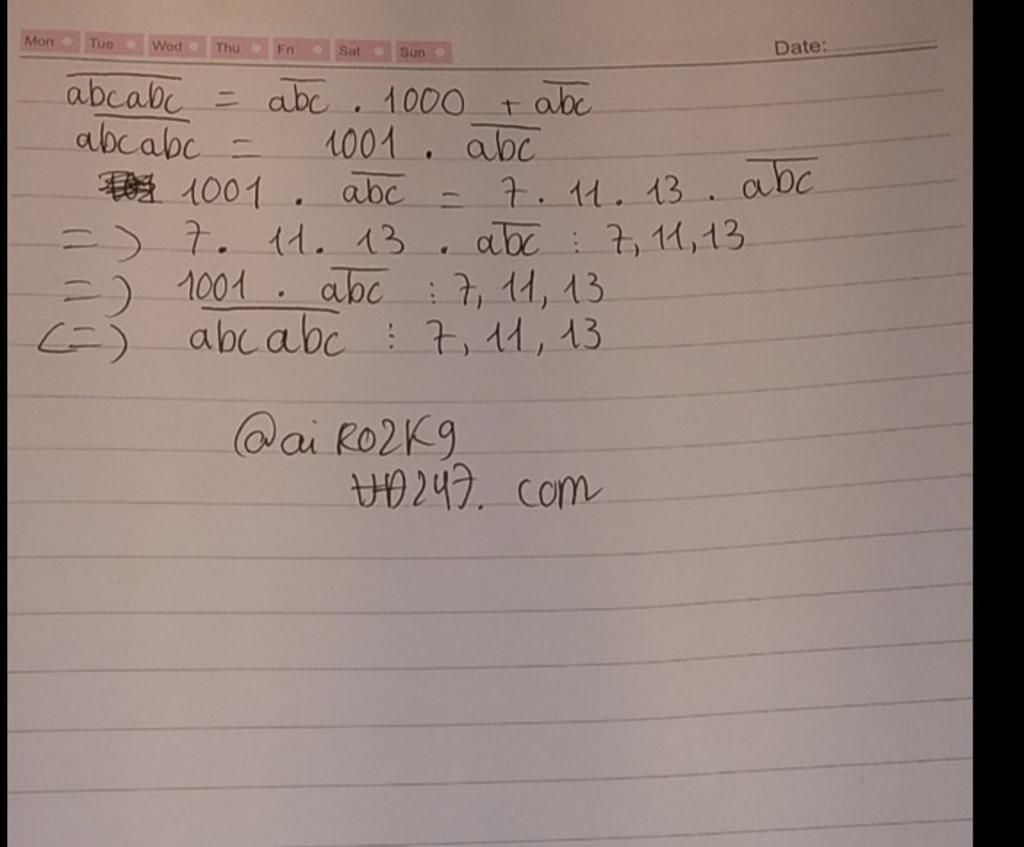 Mon Tue Wed Thu Fri Sat Sun Date:
$\overline{abcabc}$ = $\overline{abc}$ . 1000 + $\overline{abc}$
$\overline{abcabc}$ = 1001 . $\overline{abc}$
1001 . $\overline{abc}$ = 7. 11. 13 . $\overline{abc}$
=> 7. 11. 13 . $\overline{abc}$ ⋮ 7, 11, 13
=> 1001 . $\overline{abc}$ ⋮ 7, 11, 13
<=> $\overline{abcabc}$ ⋮ 7, 11, 13
@aiRO2K9
247. com